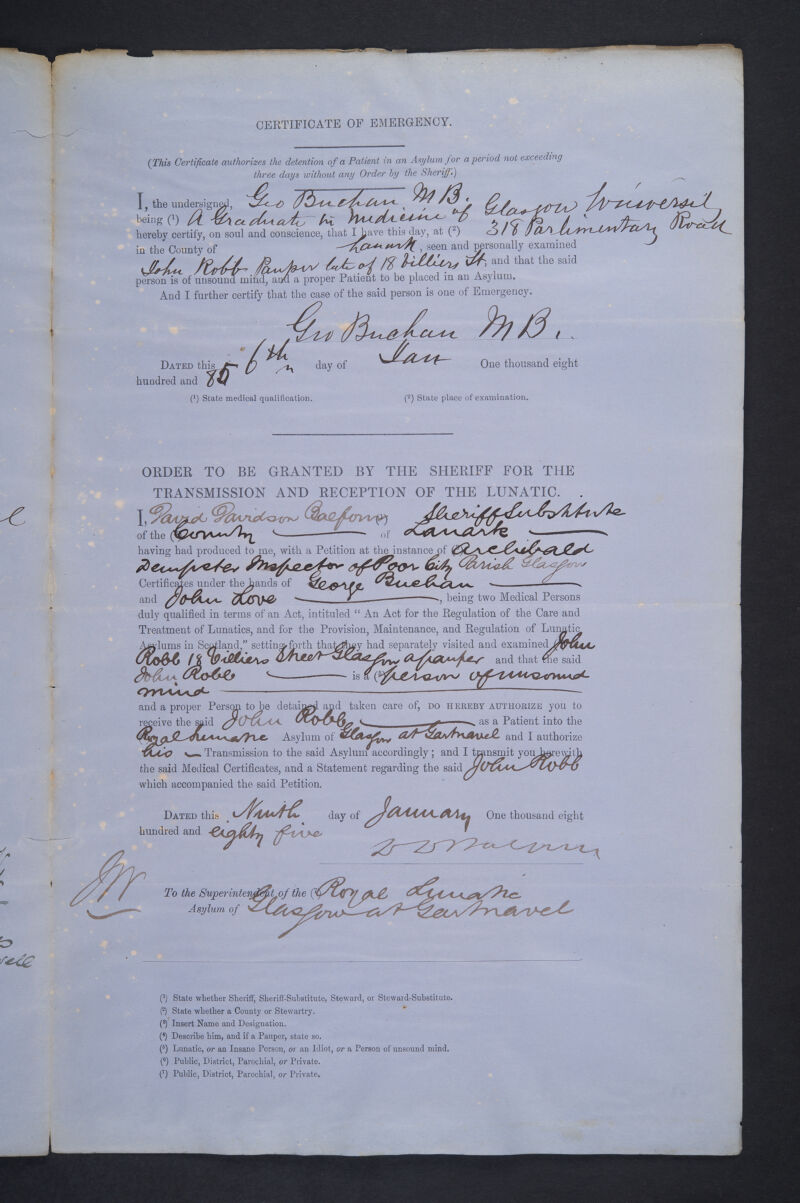 CERTIFICATE OF EMERGENCY.
(This Certificate authorizes the detention of a Patient in an Asylum for a period not exceeding
three days without any Order by the Sheriff.)
I, the undersigned, Geo Buchan M B.
being (1) A Graduate in Medicine of Glasgow
hereby certify, on soul and conscience, that I have this day, at (2) 318 Parlimentary Road
in the County of Lanark, seen and personally examined
John Robb Pauper late of 18 Villiers St. and that the said
person is of unsound mind, and a proper Patient to be placed in an Asylum.
And I further certify that the case of the said person is one of Emergency.
Geo Buchan M B.
DATED this 6th day of Jan One thousand eight
hundred and 85
(1) State medical qualification. (2) State place of examination.
ORDER TO BE GRANTED BY THE SHERIFF FOR THE
TRANSMISSION AND RECEPTION OF THE LUNATIC.
I, David Davidson Balfour Sheriff Substitute
of the County of Lanark
having had produced to me, with a Petition at the instance of Archibald
Dempster Inspector of Poor City Parish Glasgow
Certificates under the hands of George Buchan
and John Love, being two Medical Persons
duly qualified in terms of an Act, intituled "An Act for the Regulation of the Care and
Treatment of Lunatics, and for the Provision, Maintenance, and Regulation of Lunatic
Asylums in Scotland," setting forth that they had separately visited and examined John
Robb 18 Villiers Street Glasgow a pauper and that the said
John Robb is a (5) person of unsound
mind
and a proper Person to be detained and taken care of, DO HEREBY AUTHORIZE you to
receive the said John Robb as a Patient into the
Royal Lunatic Asylum of Glasgow at Gartnavel and I authorize
his Transmission to the said Asylum accordingly; and I transmit you herewith
the said Medical Certificates, and a Statement regarding the said John Robb
which accompanied the said Petition.
DATED this Ninth day of January One thousand eight
hundred and eighty five
D D Balfour
To the Superintendent of the (7) Royal Lunatic
Asylum of Glasgow at Gartnavel
(1) State whether Sheriff, Sheriff-Substitute, Steward, or Steward-Substitute.
(2) State whether a County or Stewartry.
(3) Insert Name and Designation.
(4) Describe him, and if a Pauper, state so.
(5) Lunatic, or an Insane Person, or an Idiot, or a Person of unsound mind.
(6) Public, District, Parochial, or Private.
(7) Public, District, Parochial, or Private.